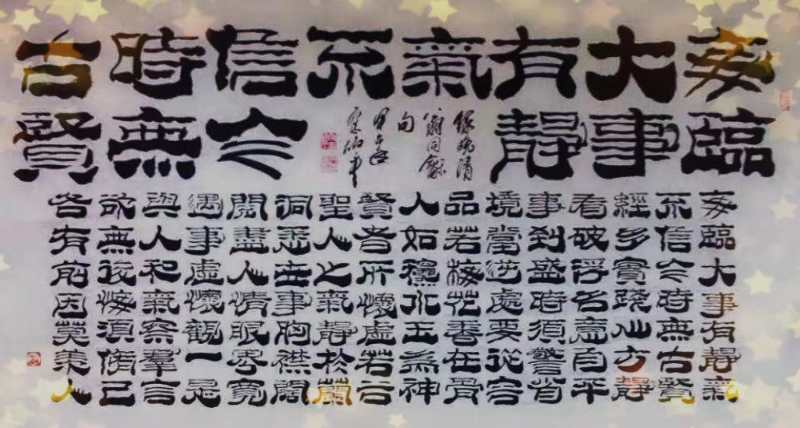 每臨
大事
有靜
氣
不
信今
時無
古賢
錄晚清
翁同龢
句
每臨大事有靜氣
不信今時無古賢
經多實踐心方靜
看破浮名意自平
事到盛時須警省
境當逆處要從容
品若梅花香在骨
人如穐水玉為神
賢者所懷虛若谷
聖人之氣靜於蘭
洞悉世事胸襟闊
閱盡人情眼界寬
遇事虛懷觀一是
與人和氣察羣言
欲無後悔須脩己
各有前因莫羨人